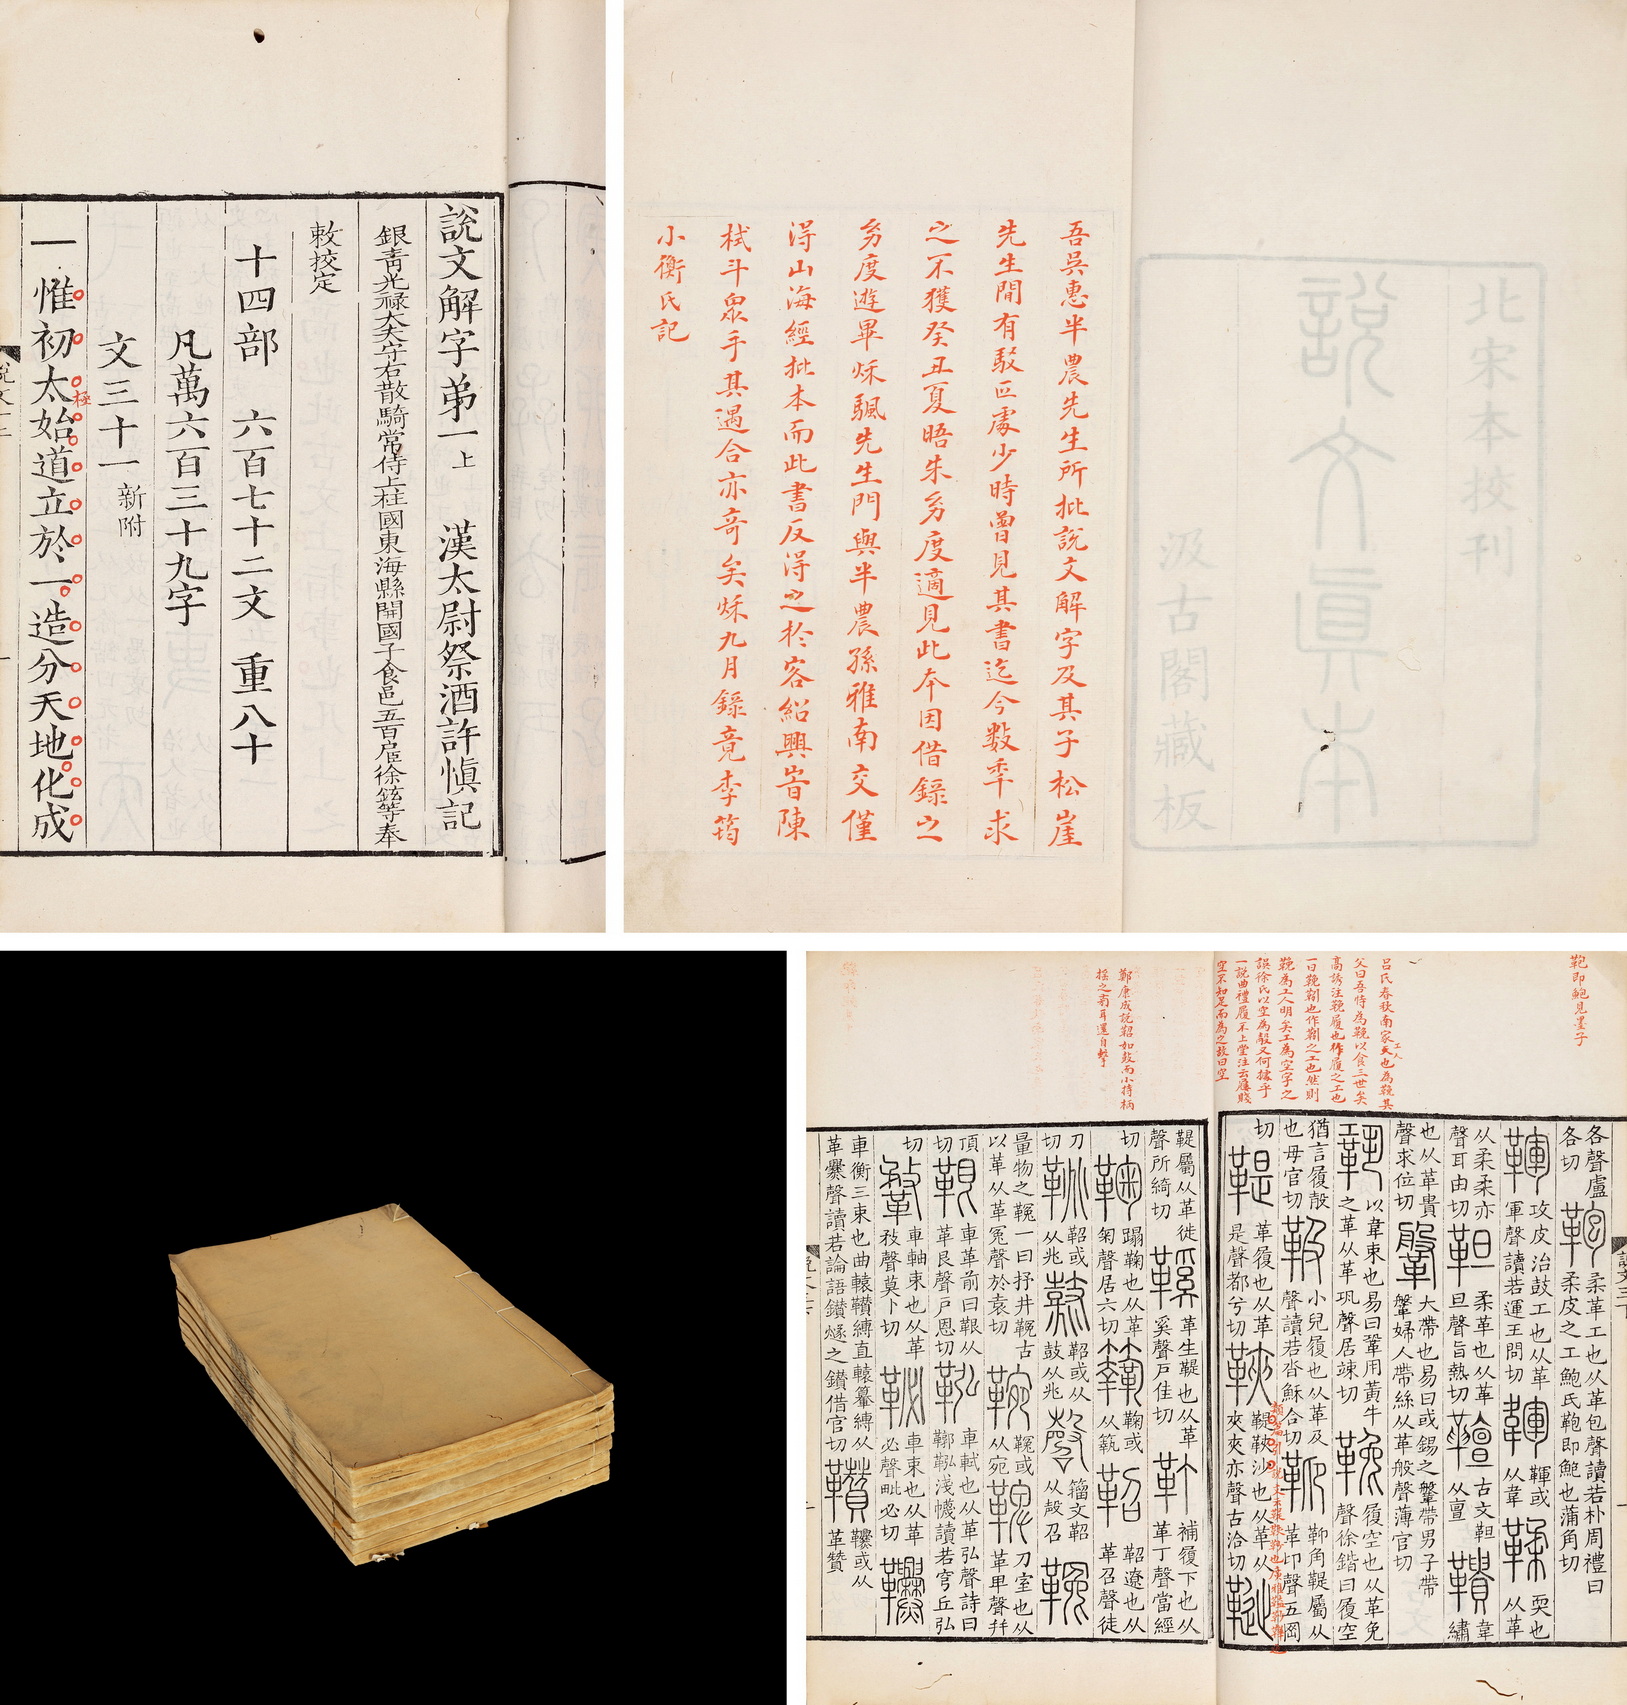 說文解字弟一上 漢太尉祭酒許慎記
銀青光禄大夫守右散騎常侍上柱國東海縣開國子食邑五百戶臣徐鉉等奉
敕挍定
十四部 六百七十二文 重八十
凡萬六百三十九字
文三十一新附
一惟初太始道立於一造分天地化成
極
北宋本校刊
說文真本
汲古閣藏板
吾吳惠半農先生所批說文解字及其子松崖
先生間有駁正處少時曾見其書迄今數年求
之不獲癸丑夏晤朱季度適見此本因借錄之
季度遊畢秌颿先生門與半農孫雅南交僅
得山海經批本而此書反得之於客紹興時陳
栻斗泉手其遇合亦奇矣秌九月錄竟李筠
小衡氏記
鞄即鮑見墨子
呂氏春秋南家工人也為鞔其
父曰吾恃為鞔以食三世矣
高誘注鞔履也作履之工也
一曰鞔靷也作靷之工也然則
鞔為工人明矣工為空字之
誤徐氏以空為殼又何據乎
一說曲禮履不上堂注云屨賤
空不知足而為之故曰空
鄭康成說鞀如鼓而小持柄
搖之旁耳還自擊
各聲盧
各切 鞄 柔革工也从革包聲讀若朴周禮曰
柔皮之工鮑氏鞄即鮑也蒲角切
鞾 攻皮治鼓工也从革
軍聲讀若運王問切 韗 鞾或
从韋 鞣 耎也
从革
从柔柔亦
聲耳由切 靼 柔革也从革
旦聲旨熱切 䩶 古文靼
从亶 韇 韋
繡
也从革貴
聲求位切 鞶 大帶也易曰或錫之鞶帶男子帶
鞶婦人帶絲从革般聲薄官切
鞏 以韋束也易曰鞏用黃牛
之革从革巩聲居竦切 鞔 履空也从革免
聲徐鍇曰履空
猶言履殼
也毋官切 靸 小兒履也从革及
聲讀若沓穌合切 䩕 䩕角鞮屬从
革卬聲五岡
切 鞮 革履也从革
是聲都兮切 鞅 鞮鞅沙也从革从
夾夾亦聲古洽切
鞮屬从革徙
聲所綺切 鞵 革生鞮也从革
奚聲戶佳切 靪 補履下也从
革丁聲當經
切 鞠 蹋鞠也从革
匊聲居六切 鞠或
从䉤 鞀 鞀遼也从
革召聲徒
刀
切 鞉 鞀或
从兆 鼗 鞀或从
鼓从兆 磬 籀文鞀
从殸召 鞔
量物之鞔一曰抒井鞔古
以革从革冤聲於袁切 鞔或
从宛 鞎 刀室也从
革卑聲幷
頂
切 鞎 車革前曰鞎从
革艮聲戶恩切 鞃 車軾也从革弘聲詩曰
鞹鞃淺幭讀若穹丘弘
切 䩵 車軸束也从革
敄聲莫卜切 䩛 車束也从革
必聲毗必切
車衡三束也曲轅䪊縛直轅䡽縛从
革爨聲讀若論語鑽燧之鑽借官切 䪊或从
革贊